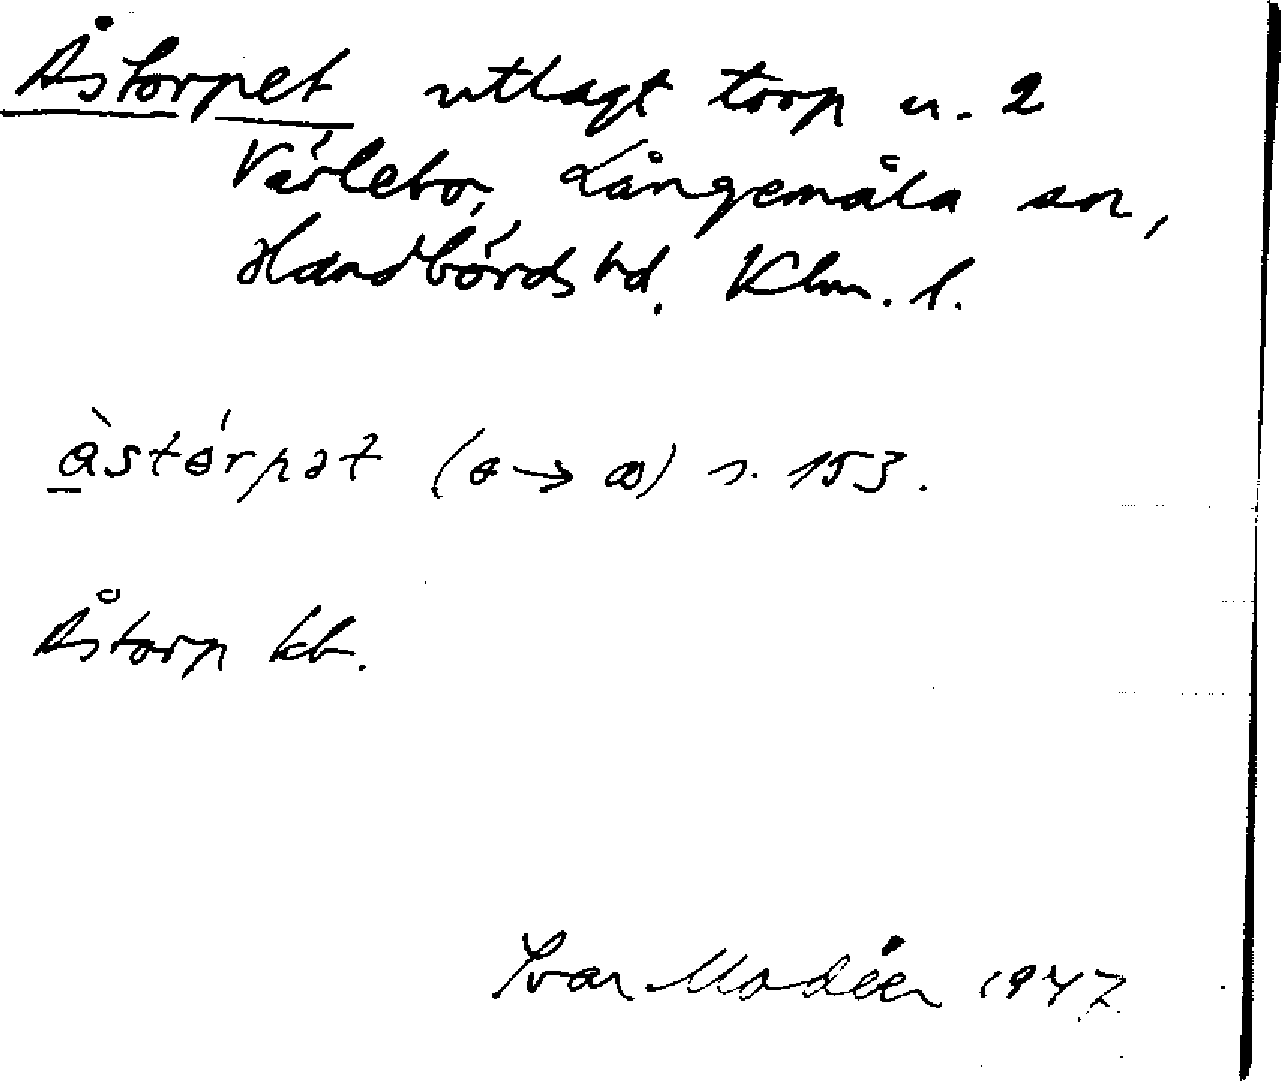 Åstorpet utlagt torp u. 2
Värlebo, Långemåla sn,
Handbörds hd. Klm. l.
àstórpət (ɵ→ꝏ) s. 153.
Åstorp kb.
Ivar Modéer 1947